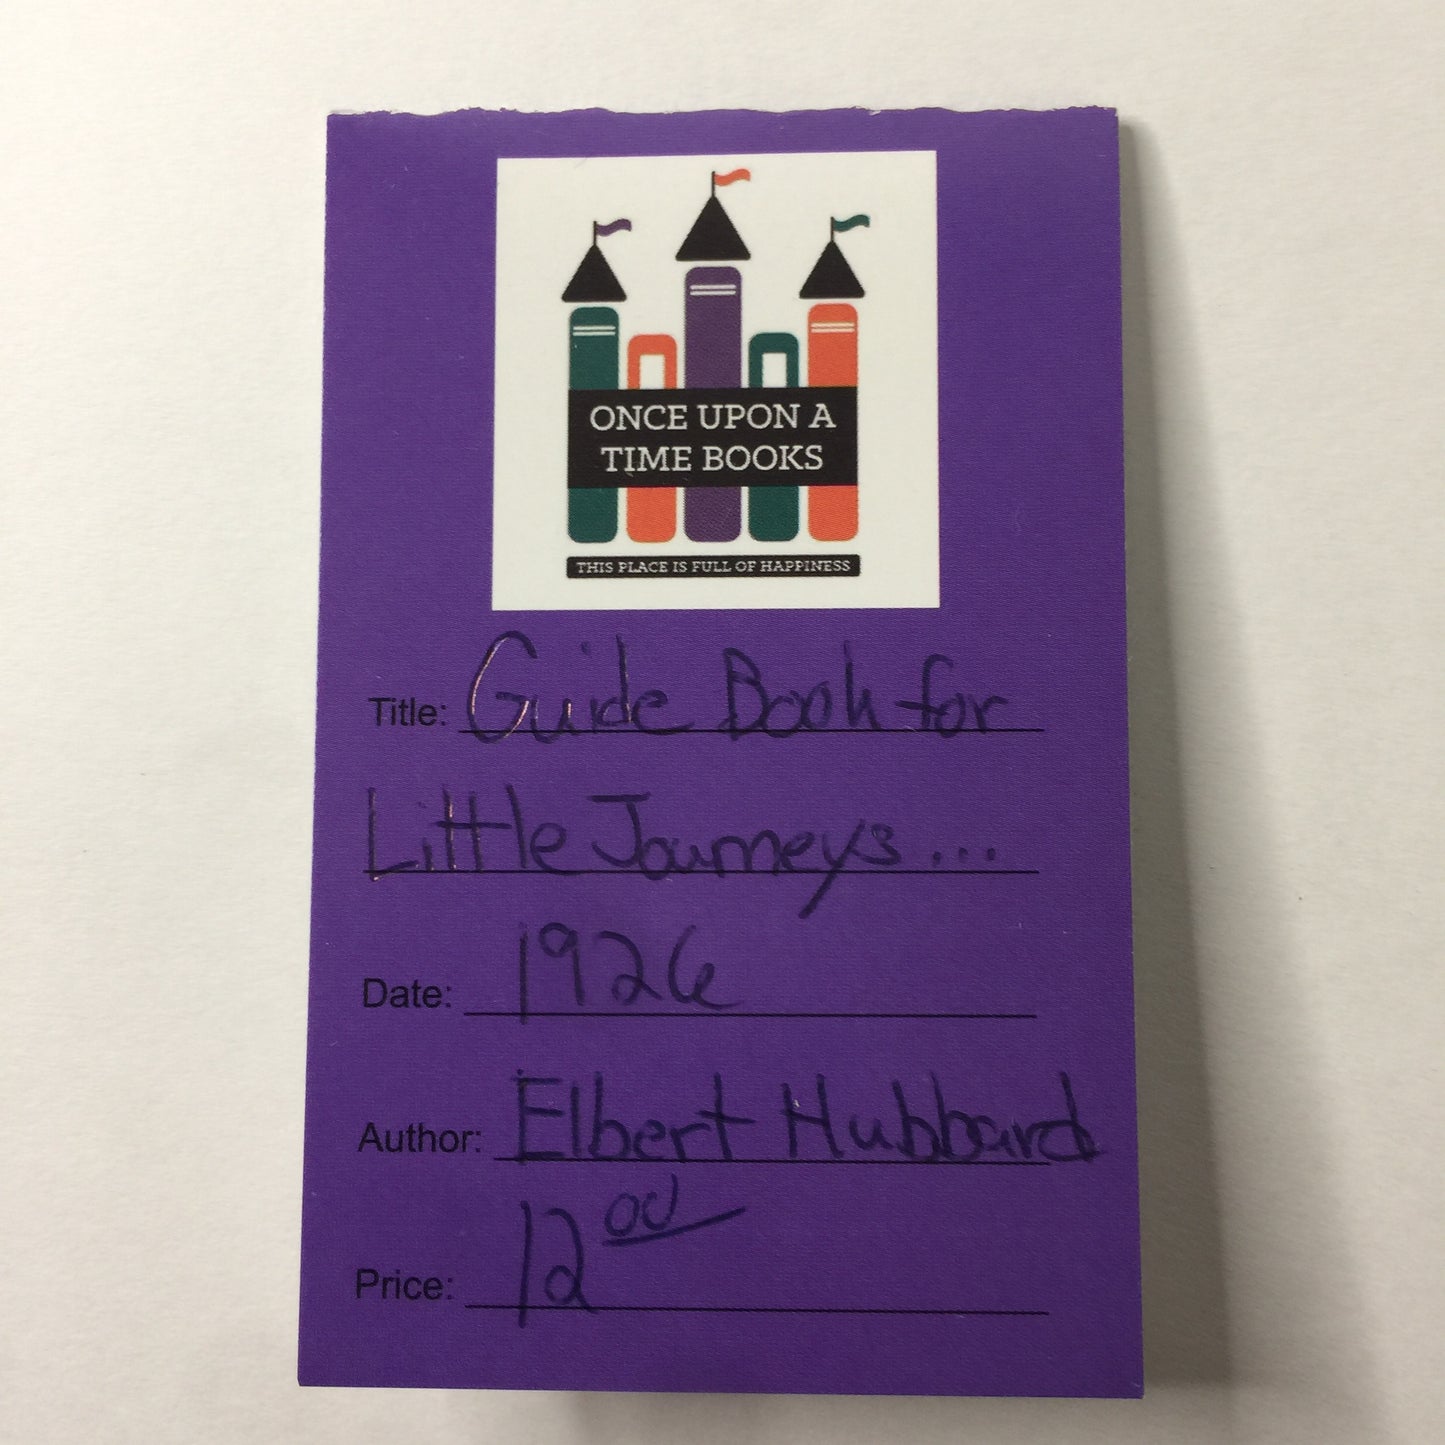 ONCE UPON A
TIME BOOKS
THIS PLACE IS FULL OF HAPPINESS
Title: Guide Book for
Little Journeys...
Date: 1926
Author: Elbert Hubbard
Price: 12 00